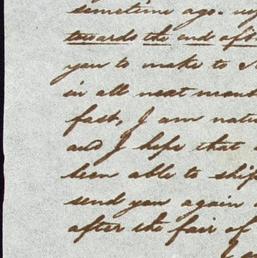 sometime ago.
towards the end of th
you to make to
in all next mon
fast, I am natu
and I hope that
been able to ship
send you again
after the fair of